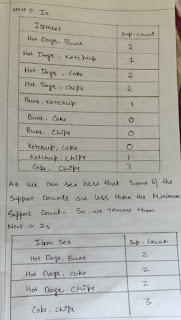 Next → Is
Itemset Sup-Count
Hot Dogs, Buns 2
Hot Dogs, Ketchup 1
Hot Dogs, Coke 2
Hot Dogs, Chips 2
Buns, Ketchup 1
Buns, Coke 0
Buns, Chips 0
Ketchup, Coke 0
Ketchup, Chips 1
Coke, Chips 3
As we can see here that some of the
Support Counts are less than the Minimum
Support Count. So, we remove them.
Next → Is
Item Set Sup-Count
Hot Dogs, Buns 2
Hot Dogs, Coke 2
Hot Dogs, Chips 2
Coke, Chips 3